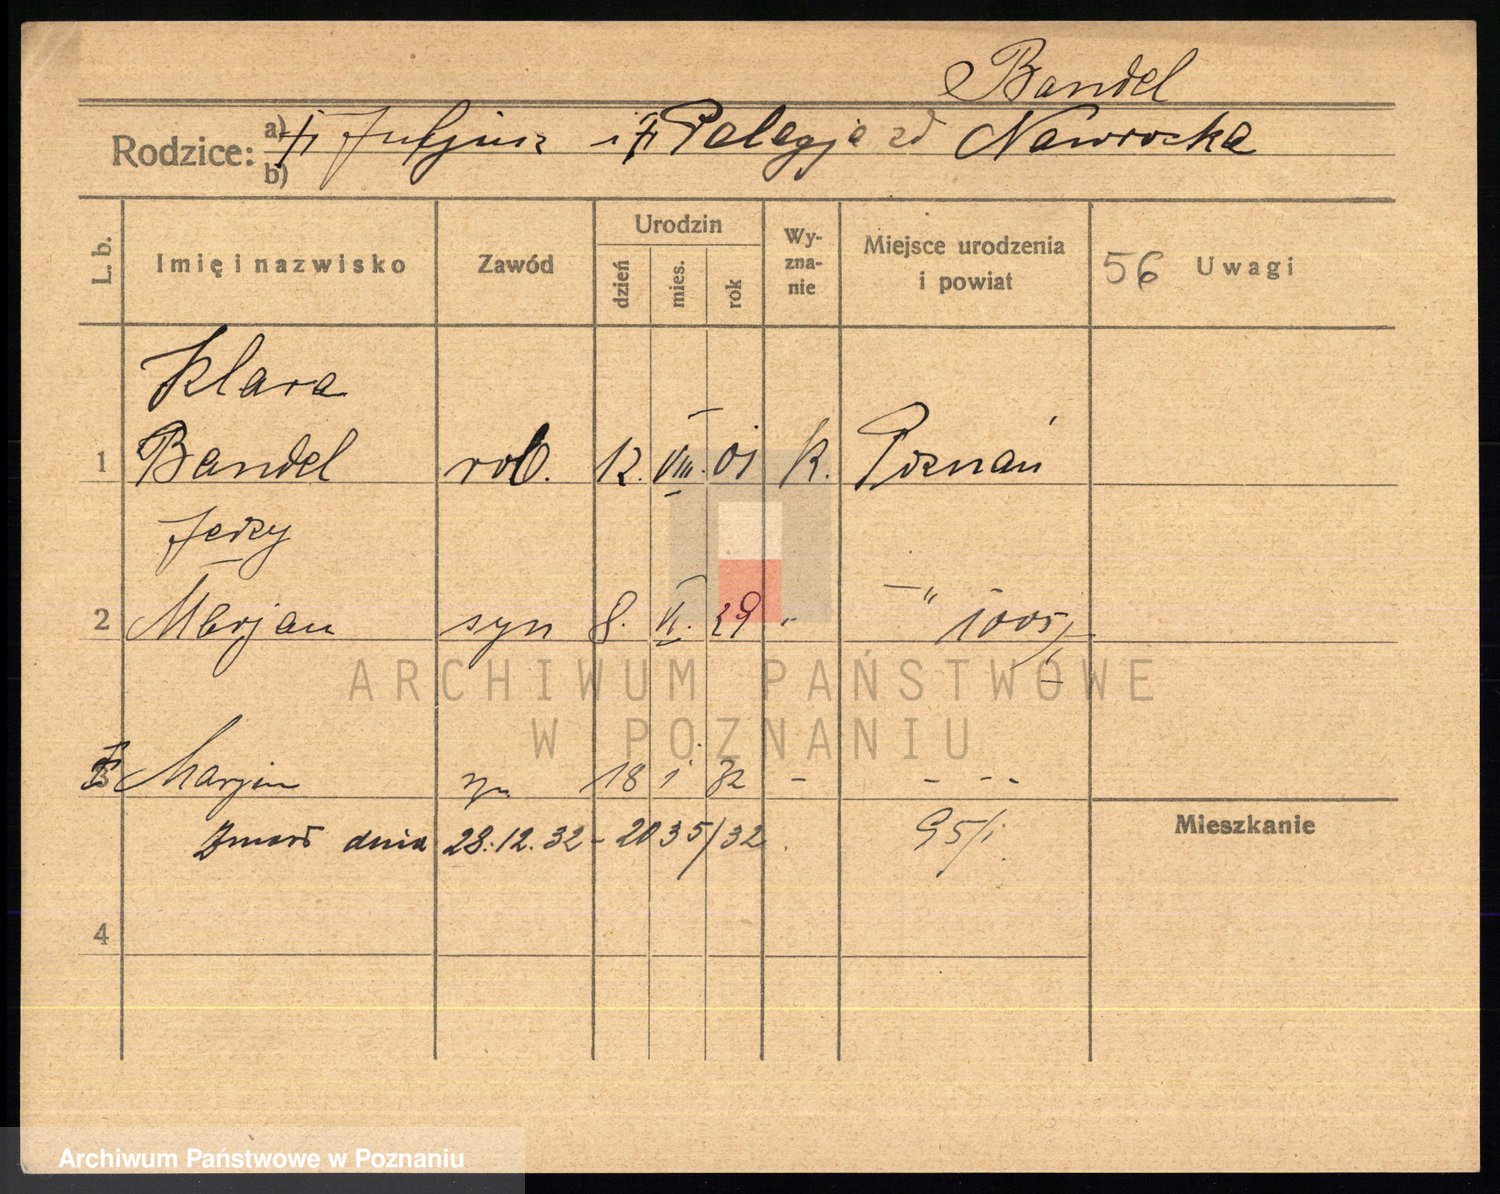 Bandel
Rodzice: a) † Juljusz i † Pelagja zd Nawrocka
b)
L. b. Imię i nazwisko Zawód Urodzin dzień mies. rok Wyznanie Miejsce urodzenia i powiat 56 Uwagi
Klara
1 Bandel rob. 12. VIII. 01 k. Poznań
Jerzy
2 Marjan syn 8. VI. 29 " —"— 1005/
3 Marjan 18 i 32 - - - -
Zmarł dnia 28.12.32 - 2035/32. 95/i. Mieszkanie
4
ARCHIWUM PAŃSTWOWE
W POZNANIU
Archiwum Państwowe w Poznaniu